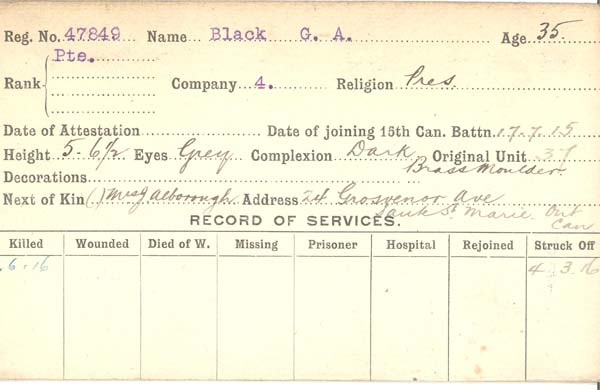 Reg. No. 47849 Name Black G. A. Age 35.
Pte.
Rank Company 4. Religion Pres.
Date of Attestation Date of joining 15th Can. Battn. 17.7.15
Height 5-6½ Eyes Grey Complexion Dark Original Unit 37
Decorations Brass Moulder.
Next of Kin ( ) Mrs J Alborough Address 24 Grosvenor Ave
Sault St Marie. Ont
Can
RECORD OF SERVICES.
Killed Wounded Died of W. Missing Prisoner Hospital Rejoined Struck Off
.6.16 4 3.16